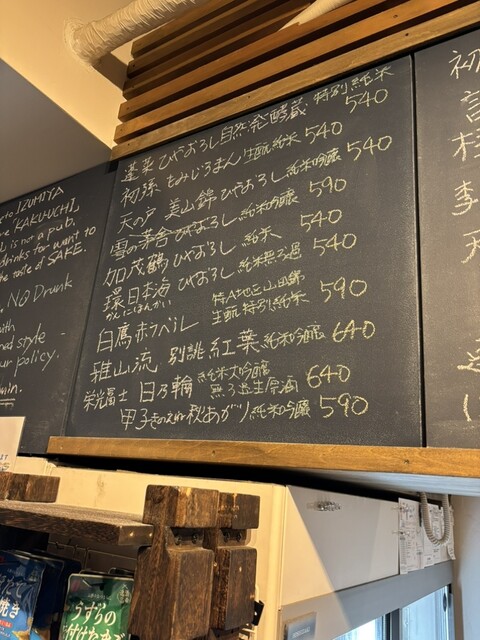 to IZUMIYA
"KAKU-UCHI"
is not a pub.
drinks for want to
the taste of SAKE.
No Drunk
with
style
our policy.
蓬莱 ひやおろし 自然発酵蔵 特別純米 540
初孫 もみじろまん 生酛純米 540
天の戸 美山錦 ひやおろし 純米吟醸 540
雪の茅舎 ひやおろし 純米吟醸 590
加茂鶴 ひやおろし 純米 540
環日本海 ひやおろし 純米無ろ過 540
かんにほんかい
白鷹 ホフベル 特A地区山田錦 生酛 特別純米 590
雅山流 別誂 紅葉 純米吟醸 640
栄光冨士 日乃輪 純米大吟醸 無ろ過生原酒 640
甲子きのえね 秋あがり 純米吟醸 590
初
うずらの